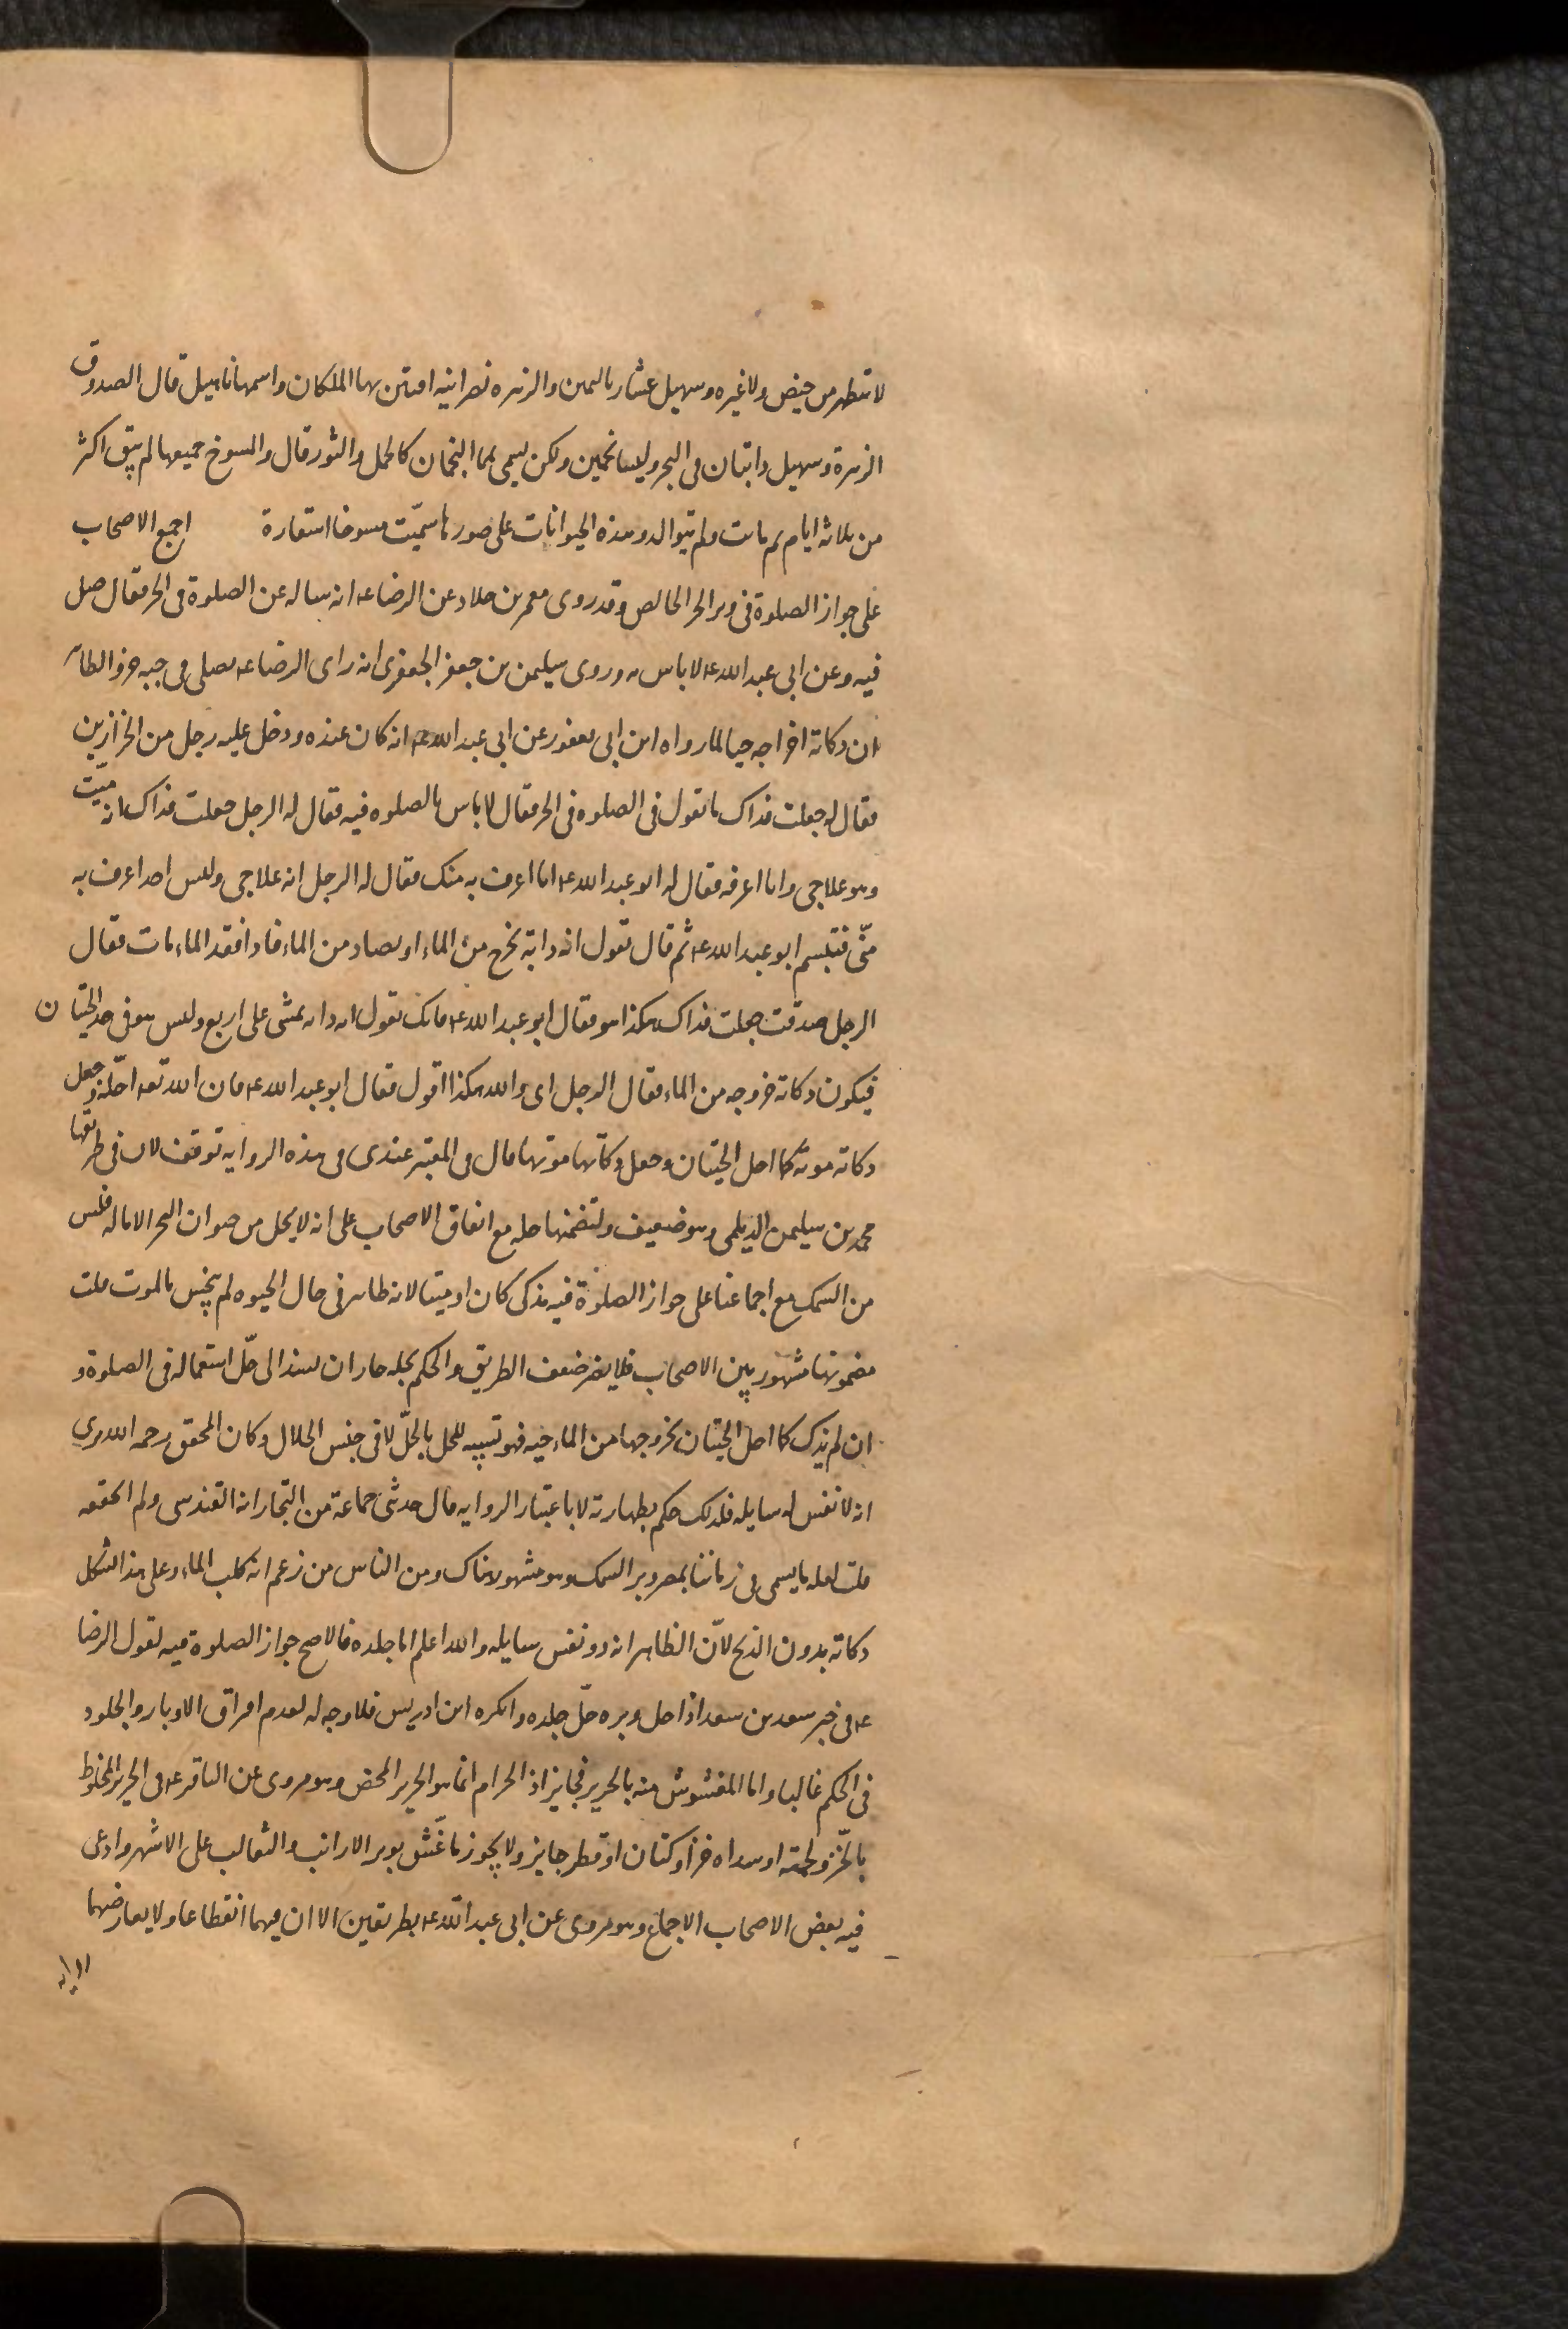 لا تتطهر من حيض ولا غيره وسهيل عشار باليمن والزهره نصرانيه افتتن بها الملكان واسمها ناهيل قال الصدوق
الزهرة وسهيل دابتان في البحر وليسا نجمين ولكن يسمى بهما النجمان كالحمل والثور قال والمسوخ جميعها لم يبق اكثر
من ثلاثة ايام ثم ماتت ولم تتوالد وهذه الحيوانات على صورها سمّيت مسوخا استعارة اجمع الاصحاب
على جواز الصلوة في وبر الخز الخالص وقد روى معمر بن خلاد عن الرضا ع انه ساله عن الصلوة في الخز فقال صل
فيه وعن ابي عبد الله ع لا باس به وروى سليمن بن جعفر الجعفري انه راى الرضا ع يصلي في جبه خز والظاهر
ان ذكاته اخراجه حيا لما رواه ابن ابي يعفور عن ابي عبد الله ع انه كان عنده ودخل عليه رجل من الخزازين
فقال له جعلت فداك ما تقول في الصلوه في الخز فقال لا باس بالصلوه فيه فقال له الرجل جعلت فداك انه ميّت
وهو علاجي وانا اعرفه فقال له ابو عبد الله ع انا اعرف به منك فقال له الرجل انه علاجي وليس احد اعرف به
منّي فتبسم ابو عبد الله ع ثم قال تقول انه دابة تخرج من الماء او تصاد من الماء فاذا فقد الماء مات فقال
الرجل صدقت جعلت فداك هكذا هو فقال ابو عبد الله ع فانك تقول انه دابه تمشى على اربع وليس هو في حد الحيتان
فيكون ذكاته خروجه من الماء فقال الرجل اى والله هكذا اقول فقال ابو عبد الله ع فان الله تعه احلّه وجعل
ذكاته موته كما احل الحيتان وجعل ذكاتها موتها قال في المعتبر عندى في هذه الروايه توقف لان في طريقها
محمد بن سليمن الديلمي وهو ضعيف ولتضمنها حله مع اتفاق الاصحاب على انه لا يحل من حيوان البحر الا ما له فلس
من السمك مع اجماعنا على جواز الصلوة فيه مذكى كان او ميتا لانه طاهر في حال الحيوه لم ينجس بالموت قلت
مضمونها مشهور بين الاصحاب فلا يضر ضعف الطريق والحكم بحله جاز ان يسند الى حلّ استعماله في الصلوة و
ان لم يذك كما احل الحيتان بخروجها من الماء حيه فهو تشبيه للحل بالحلّ لا في جنس الحلال وكان المحقق رحمه الله يرى
انه لا نفس له سايله فلذلك حكم بطهارته لا باعتبار الروايه قال حدثنى جماعة من التجار انه القندس ولم اتحققه
قلت لعله ما يسمى في زماننا بمصر وبر السمك وهو مشهور هناك ومن الناس من زعم انه كلب الماء وعلى هذا تشكل
ذكاته بدون الذبح لانّ الظاهر انه ذو نفس سايله والله اعلم اما جلده فالاصح جواز الصلوة فيه لقول الرضا
ع في خبر سعد بن سعد اذا حل وبره حلّ جلده وانكره ابن ادريس فلا وجه له لعدم افراق الاوبار والجلود
في الحكم غالبا واما المغشوش منه بالحرير فجايز اذ الحرام انما هو الحرير المحض وهو مروى عن الباقر ع في الحرير المخلوط
بالخّز ولحمته او سداه خز او كتان او قطن جايز ولا يجوز ما غّش بوبر الارانب والثعالب على الاشهر وادعى
فيه بعض الاصحاب الاجماع وهو مروى عن ابى عبد الله ع بطريقين الا ان فيهما انقطاعا ولا يعارضهما